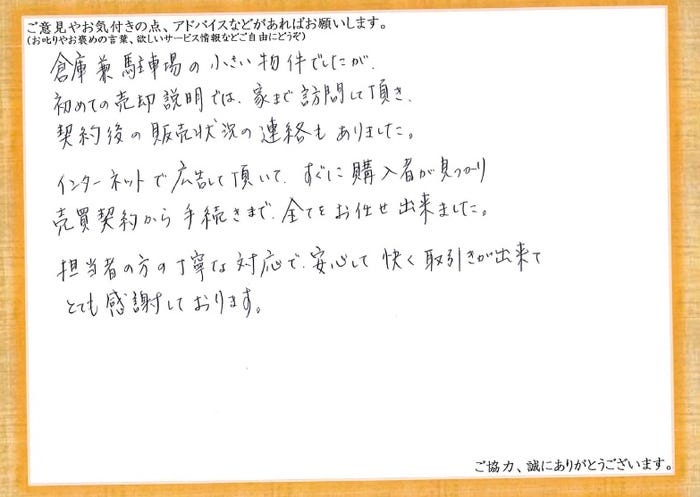 ご意見やお気付きの点、アドバイスなどがあればお願いします。
(お叱りやお褒めの言葉、欲しいサービス情報などご自由にどうぞ)
倉庫兼駐車場の小さい物件でしたが、
初めての売却説明では、家まで訪問して頂き、
契約後の販売状況の連絡もありました。
インターネットで広告して頂いて、すぐに購入者が見つかり
売買契約から手続きまで、全てをお任せ出来ました。
担当者の方の丁寧な対応で、安心して快く取引きが出来て
とても感謝しております。
ご協力、誠にありがとうございます。